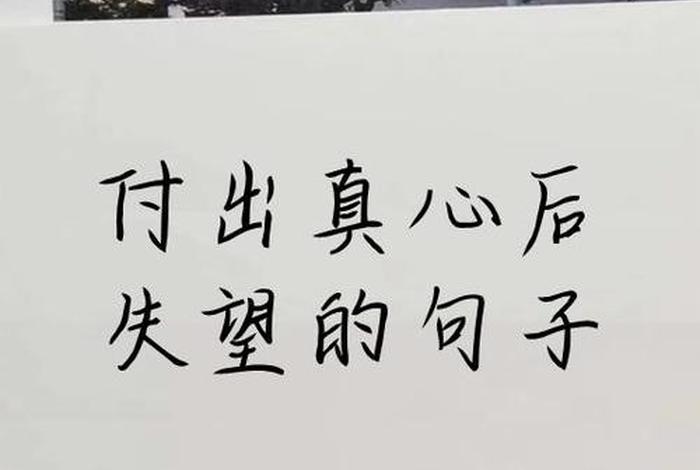 付出真心后
失望的句子